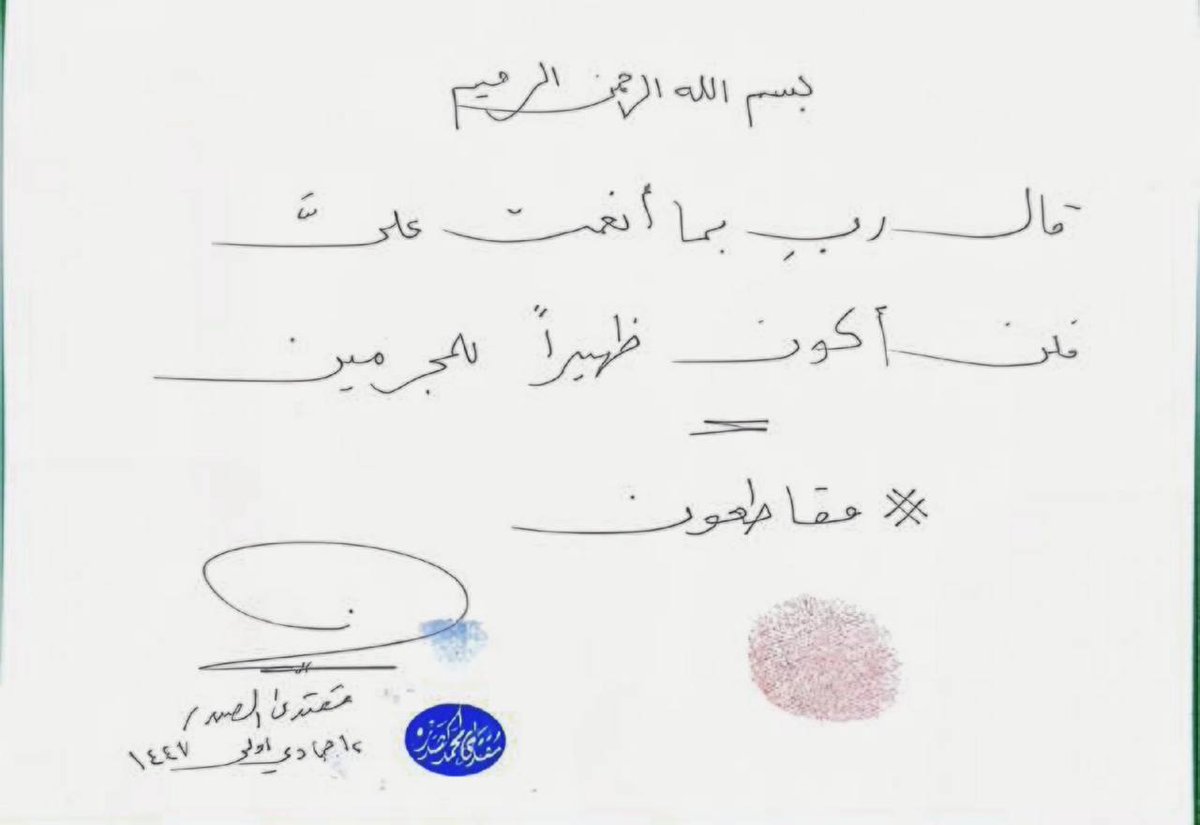 بسم الله الرحمن الرحيم
قال ربِ بما أنعمت علىَّ
فلن أكون ظهيراً للمجرمين
※ مقاطعون
مقتدى الصدر
جمادي أولى ١٤٤٧